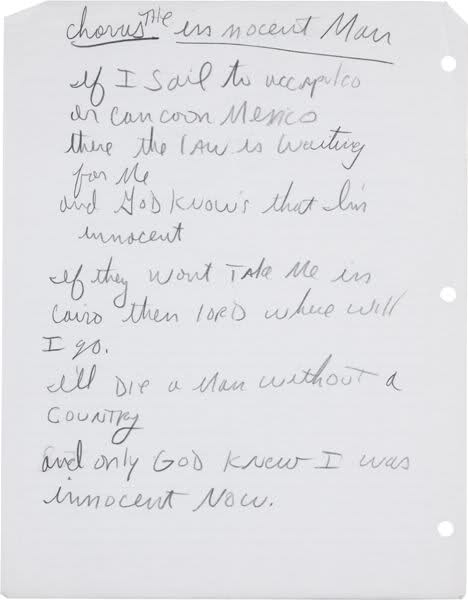 chorus THE innocent Man
if I Sail to accapulco
or cancoon Mexico
there the LAW is waiting
for Me
and GOD KNOW'S that I'm
innocent
if they wont TAKE Me in
Cairo then LORD where will
I go.
ill DIE a Man without a
COUNTRY
and only GOD KNEW I was
innocent NOW.